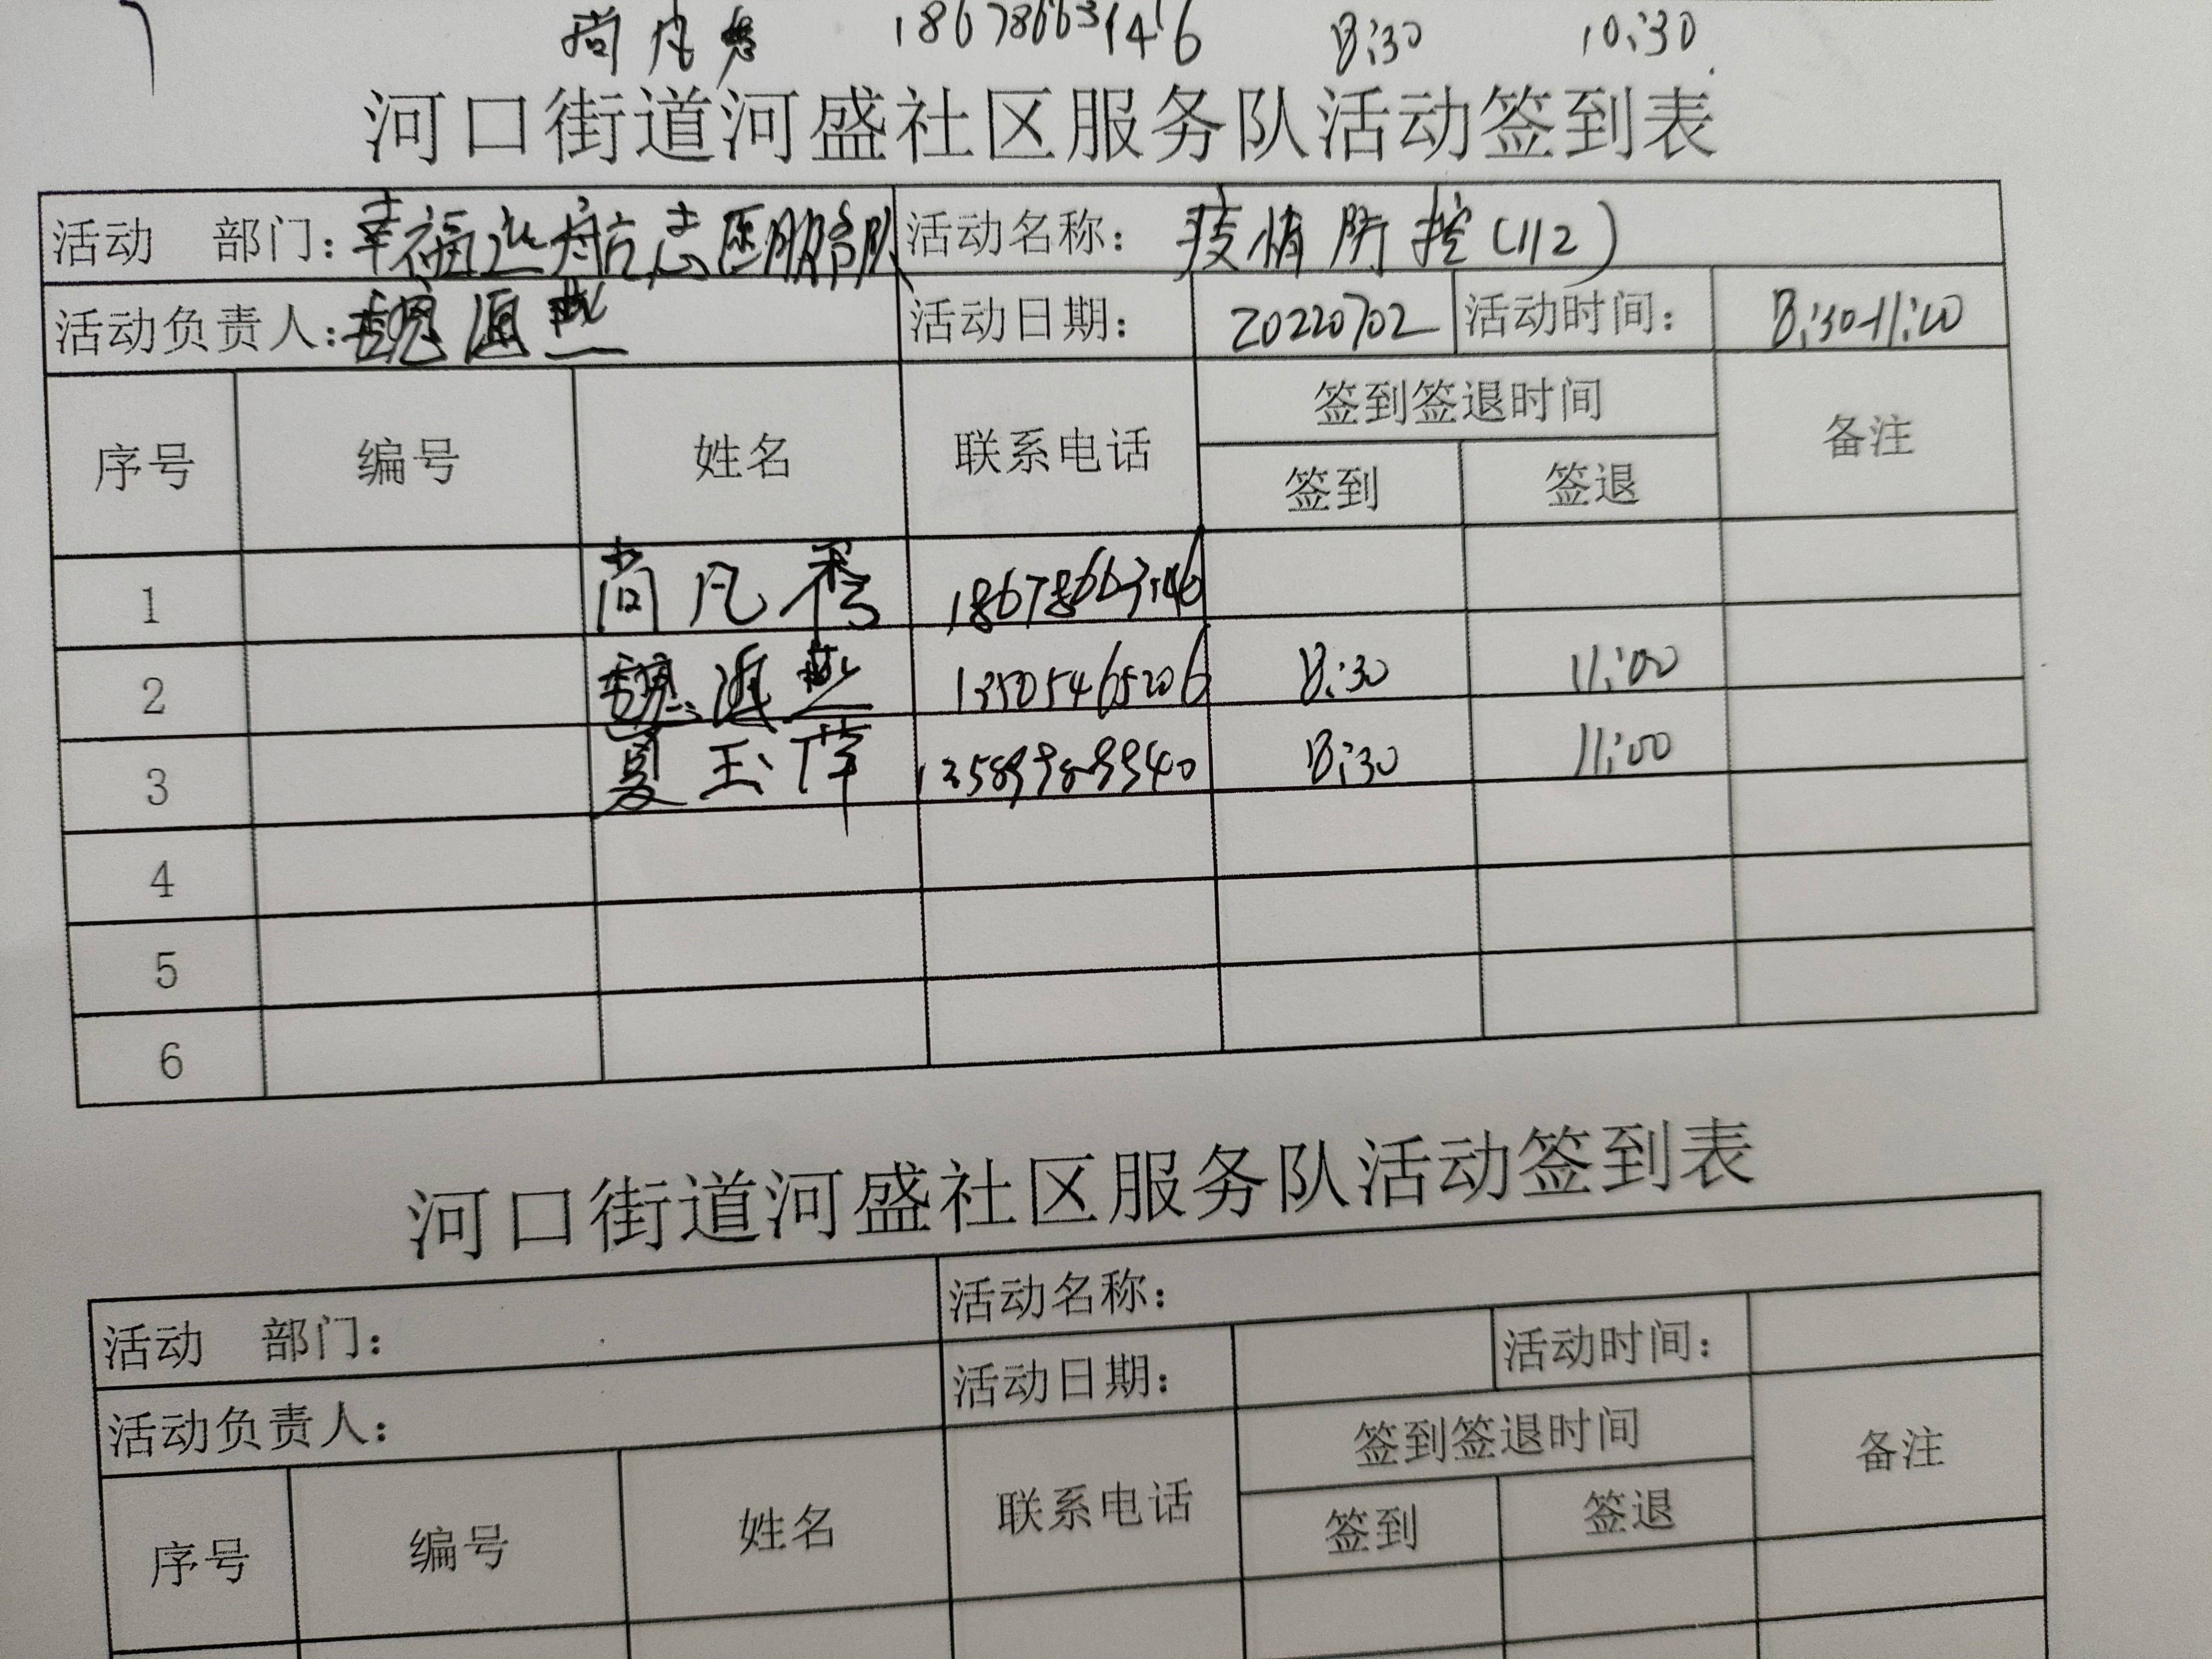 7 尚凡秀 18678663146 8:30 10:30
河口街道河盛社区服务队活动签到表
活动 部门：幸福 志愿服务队 活动名称：疫情防控(112)
活动负责人：魏 燕 活动日期：20220702 活动时间：8:30-11:00
签到签退时间
序号 编号 姓名 联系电话 签到 签退 备注
1 尚凡秀 18678663146
2 魏 燕 13505465206 8:30 11:00
3 夏玉萍 13589989940 8:30 11:00
4
5
6
河口街道河盛社区服务队活动签到表
活动 部门： 活动名称：
活动负责人： 活动日期： 活动时间：
签到签退时间
序号 编号 姓名 联系电话 签到 签退 备注